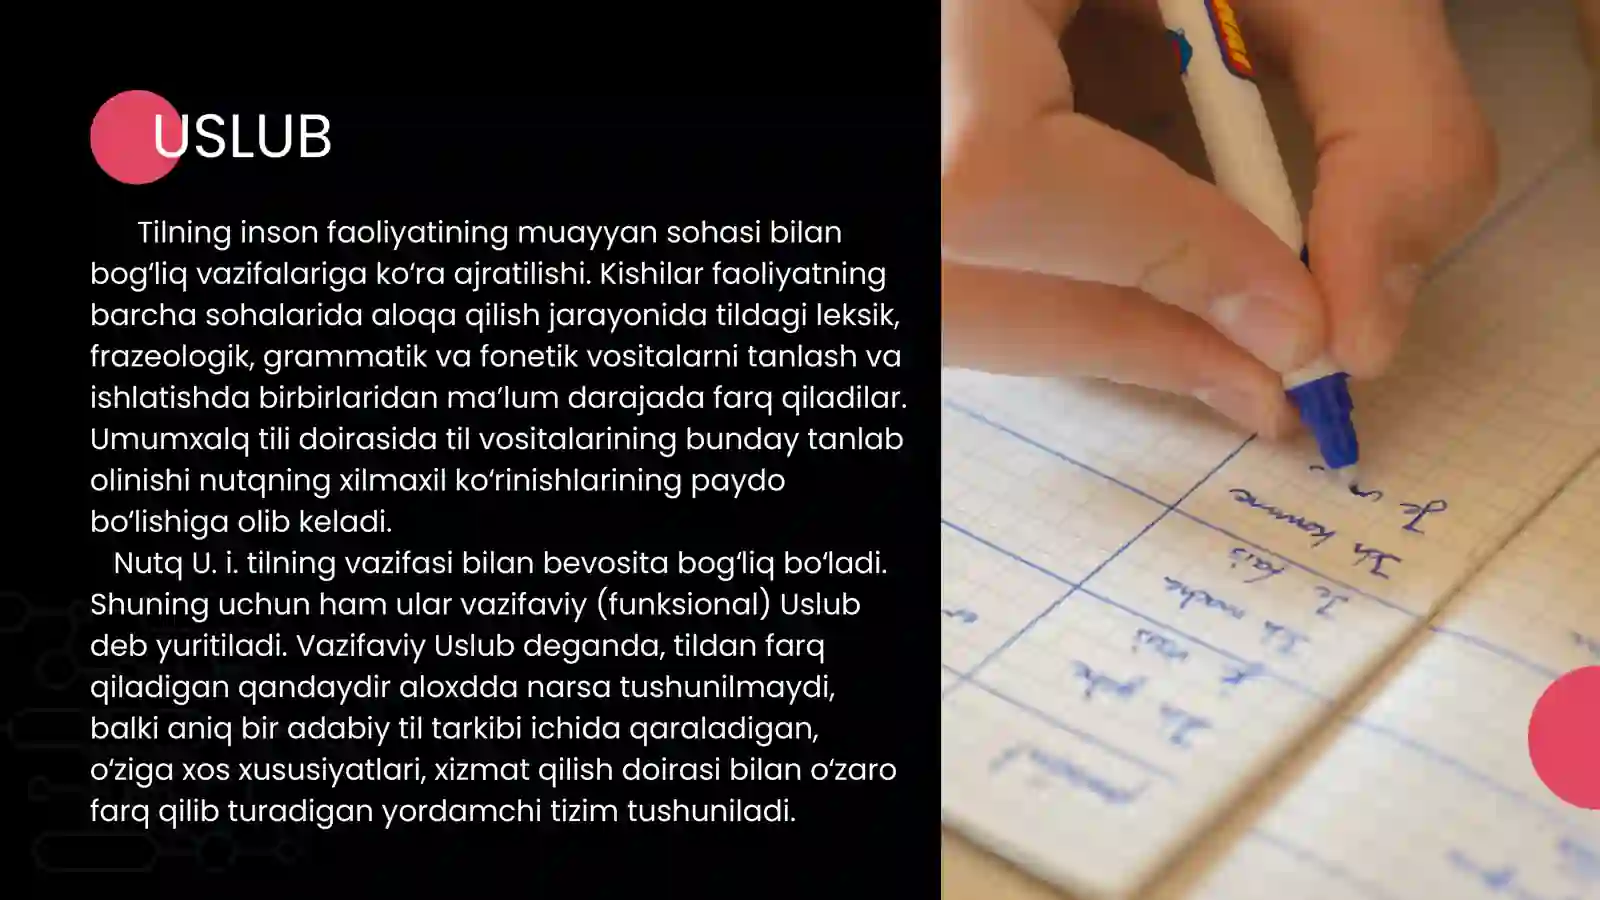 USLUB
Tilning inson faoliyatining muayyan sohasi bilan
bogʻliq vazifalariga koʻra ajratilishi. Kishilar faoliyatning
barcha sohalarida aloqa qilish jarayonida tildagi leksik,
frazeologik, grammatik va fonetik vositalarni tanlash va
ishlatishda birbirlaridan maʼlum darajada farq qiladilar.
Umumxalq tili doirasida til vositalarining bunday tanlab
olinishi nutqning xilmaxil koʻrinishlarining paydo
boʻlishiga olib keladi.
Nutq U. i. tilning vazifasi bilan bevosita bogʻliq boʻladi.
Shuning uchun ham ular vazifaviy (funksional) Uslub
deb yuritiladi. Vazifaviy Uslub deganda, tildan farq
qiladigan qandaydir aloxdda narsa tushunilmaydi,
balki aniq bir adabiy til tarkibi ichida qaraladigan,
oʻziga xos xususiyatlari, xizmat qilish doirasi bilan oʻzaro
farq qilib turadigan yordamchi tizim tushuniladi.
Ich komme
Je fais
Ich mache
Je vais